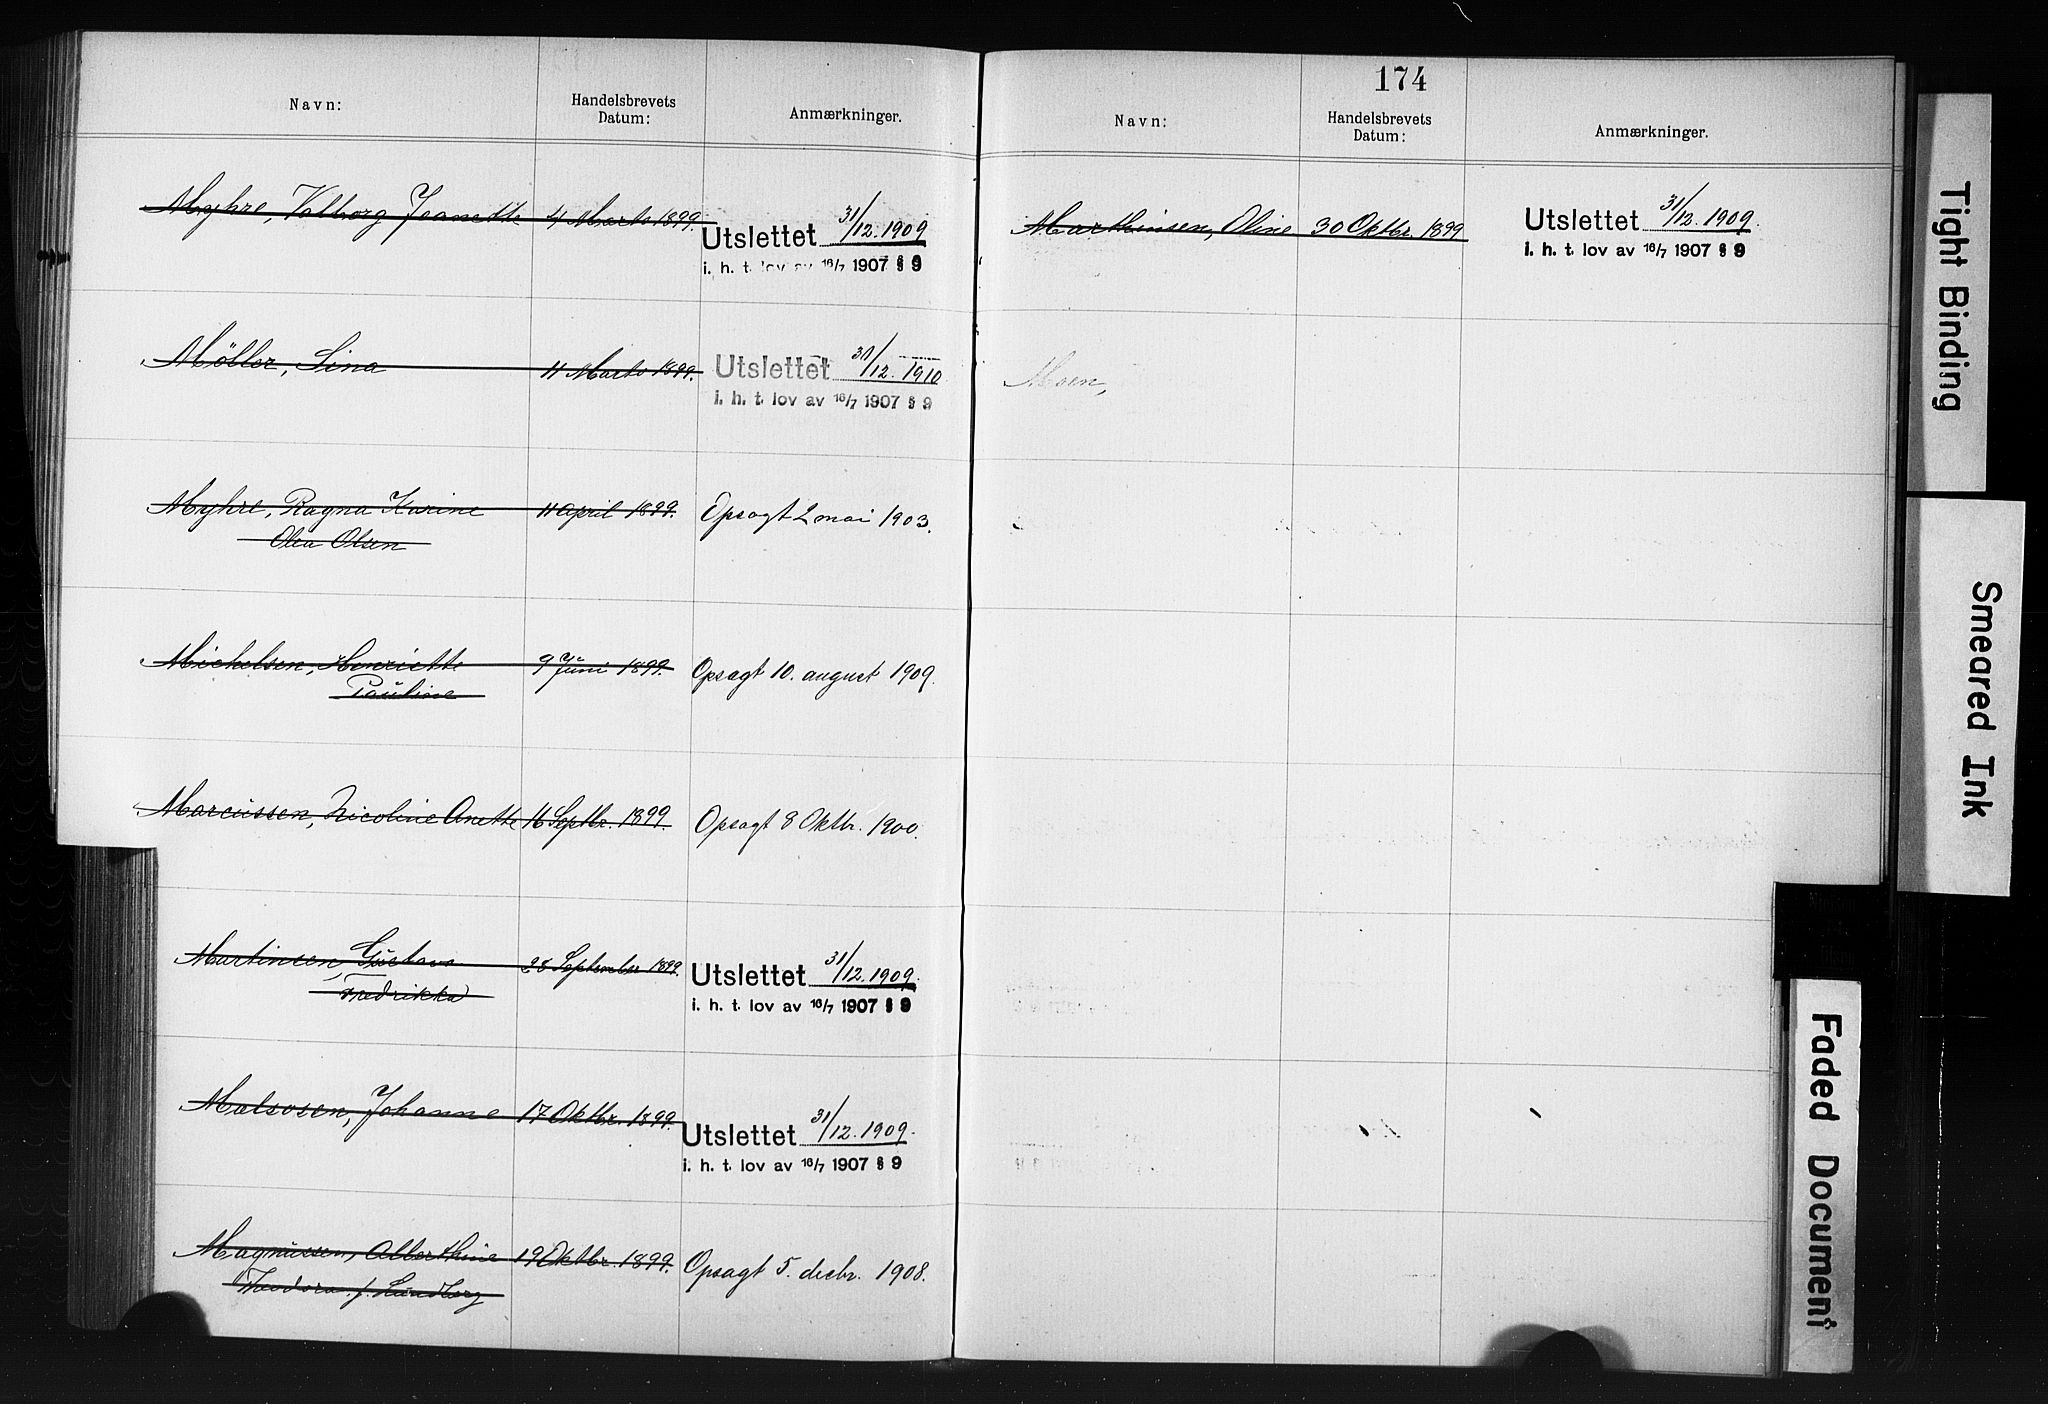 Navn:
Handelsbrevets
Datum:
Anmærkninger.
Myhre, Valborg Jeanette 4 Marts 1899. Utslettet 31/12. 1909
i. h. t. lov av 16/7 1907 § 9
Möller, Lina 11 Marts 1899. Utslettet 31/12. 1910
i. h. t. lov av 16/7 1907 § 9
Myhre, Ragna Karine 11 April 1899. Opsagt 2 mai 1903.
Olea Olsen
Michelsen, Henriette 9 Juni 1899. Opsagt 10. august 1909.
Pauline
Marcussen, Nicoline Anette 16 Septbr. 1899. Opsagt 8 Oktbr. 1900.
Martinsen, Gustava 28 September 1899. Utslettet 31/12. 1909.
Fredrikka i. h. t. lov av 16/7 1907 § 9
Johanne 17 Oktbr. 1899. Utslettet 31/12. 1909.
i. h. t. lov av 16/7 1907 § 9
Magnussen, Alberthine 19 Oktbr. 1899. Opsagt 5. decbr. 1908.
Theodora f. Lundberg
174
Navn:
Handelsbrevets
Datum:
Anmærkninger.
Marthinsen, Oline 30 Oktbr. 1899 Utslettet 31/12. 1909.
i. h. t. lov av 16/7 1907 § 9
Moen,
Tight Binding
Smeared Ink
Faded Document